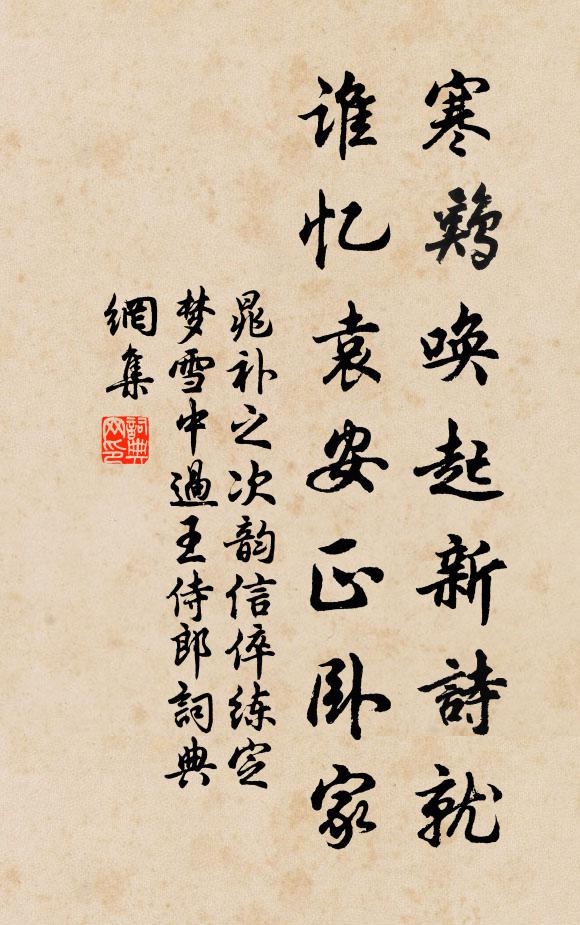 寒鷄唤起新詩就
谁忆袁安正卧家
晁补之次韵信倅练定
梦雪中過王侍郎詞典
網集
詞典
网印